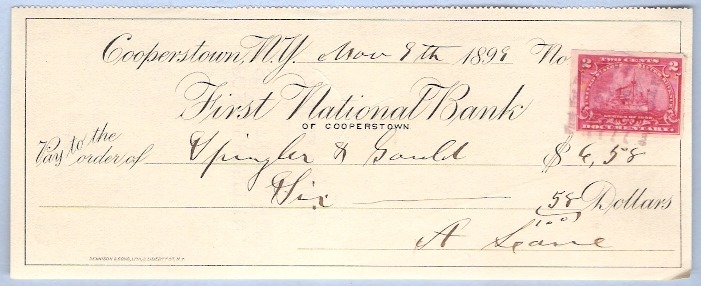 Cooperstown, N.Y. Nov 9th 1899 No
TWO CENTS
2 2
DOCUMENTARY
First National Bank
OF COOPERSTOWN
Pay to the order of Spingler & Gould $6,58
Six 58/100 Dollars
A